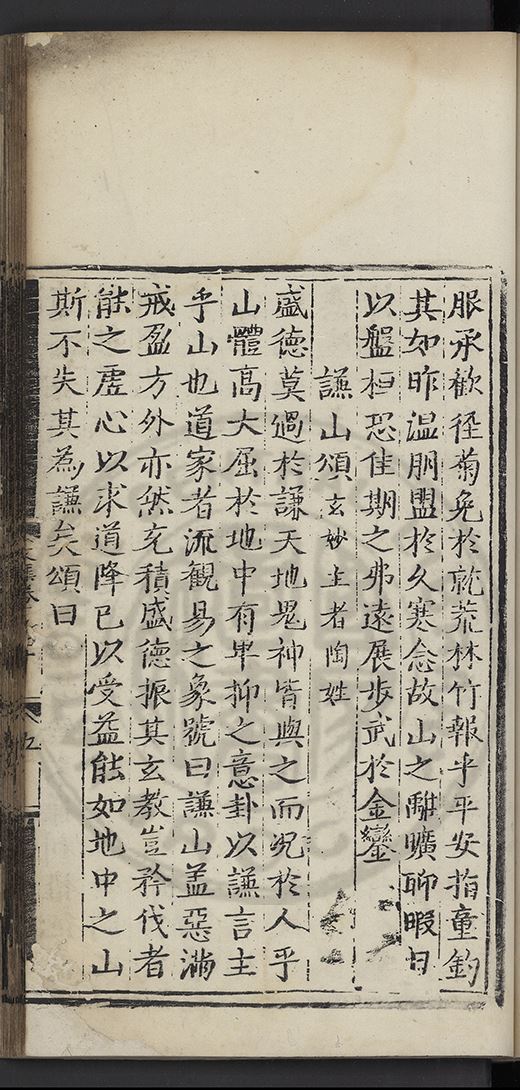 服承歡徑菊免於就荒林竹報乎平安指童釣
其如昨温朋盟於久寒念故山之離曠聊暇日
以盤桓恐佳期之弗遠展步武於金鑾
謙山頌玄妙主者陶姓
盛德莫過於謙天地鬼神皆與之而况於人乎
山體高大屈於地中有卑抑之意卦以謙言主
乎山也道家者流觀易之象號曰謙山盖惡滿
戒盈方外亦然充積盛德振其玄教豈矜伐者
能之虚心以求道降已以受益能如地中之山
斯不失其為謙矣頌曰
九